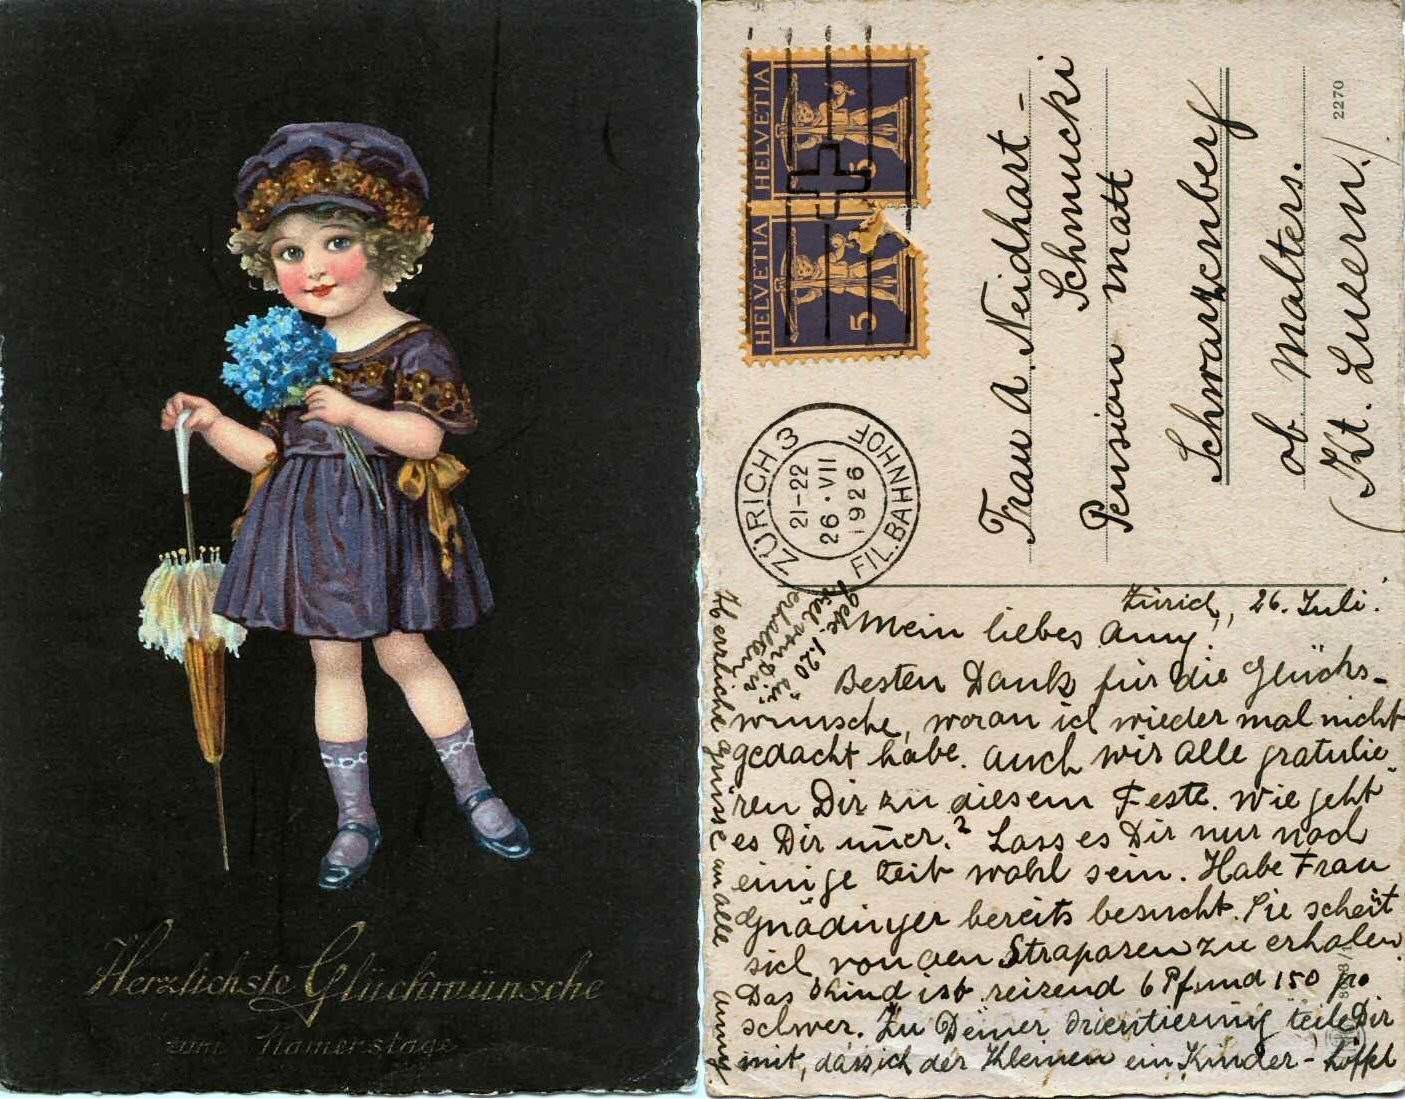 Herzlichste Glückwünsche
zum Namenstage
HELVETIA 5
HELVETIA 5
ZÜRICH 3
21-22
26.VII
1926
FIL.BAHNHOF
2270
Frau A. Neidhart-
Schmucki
Pension Matt
Schwarzenberg
ob Malters.
(Kt. Luzern.)
Zürich, 26. Juli.
Mein liebes Anny!
Besten Dank für die Glücks-
wünsche, woran ich wieder mal nicht
gedacht habe. Auch wir alle gratulie
ren Dir zu diesem Feste. Wie geht
es Dir immer? Lass es Dir nur noch
einige Zeit wohl sein. Habe Frau
Gnädinger bereits besucht. Sie scheit
sich von den Strapazen zu erholen
Das Kind ist reizend 6 Pfund 150 gr
schwer. Zu Deiner Orientierung teile Dir
mit, dass ich der Kleinen ein Kinder-Löffel
Herrliche Grüsse an alle Anny